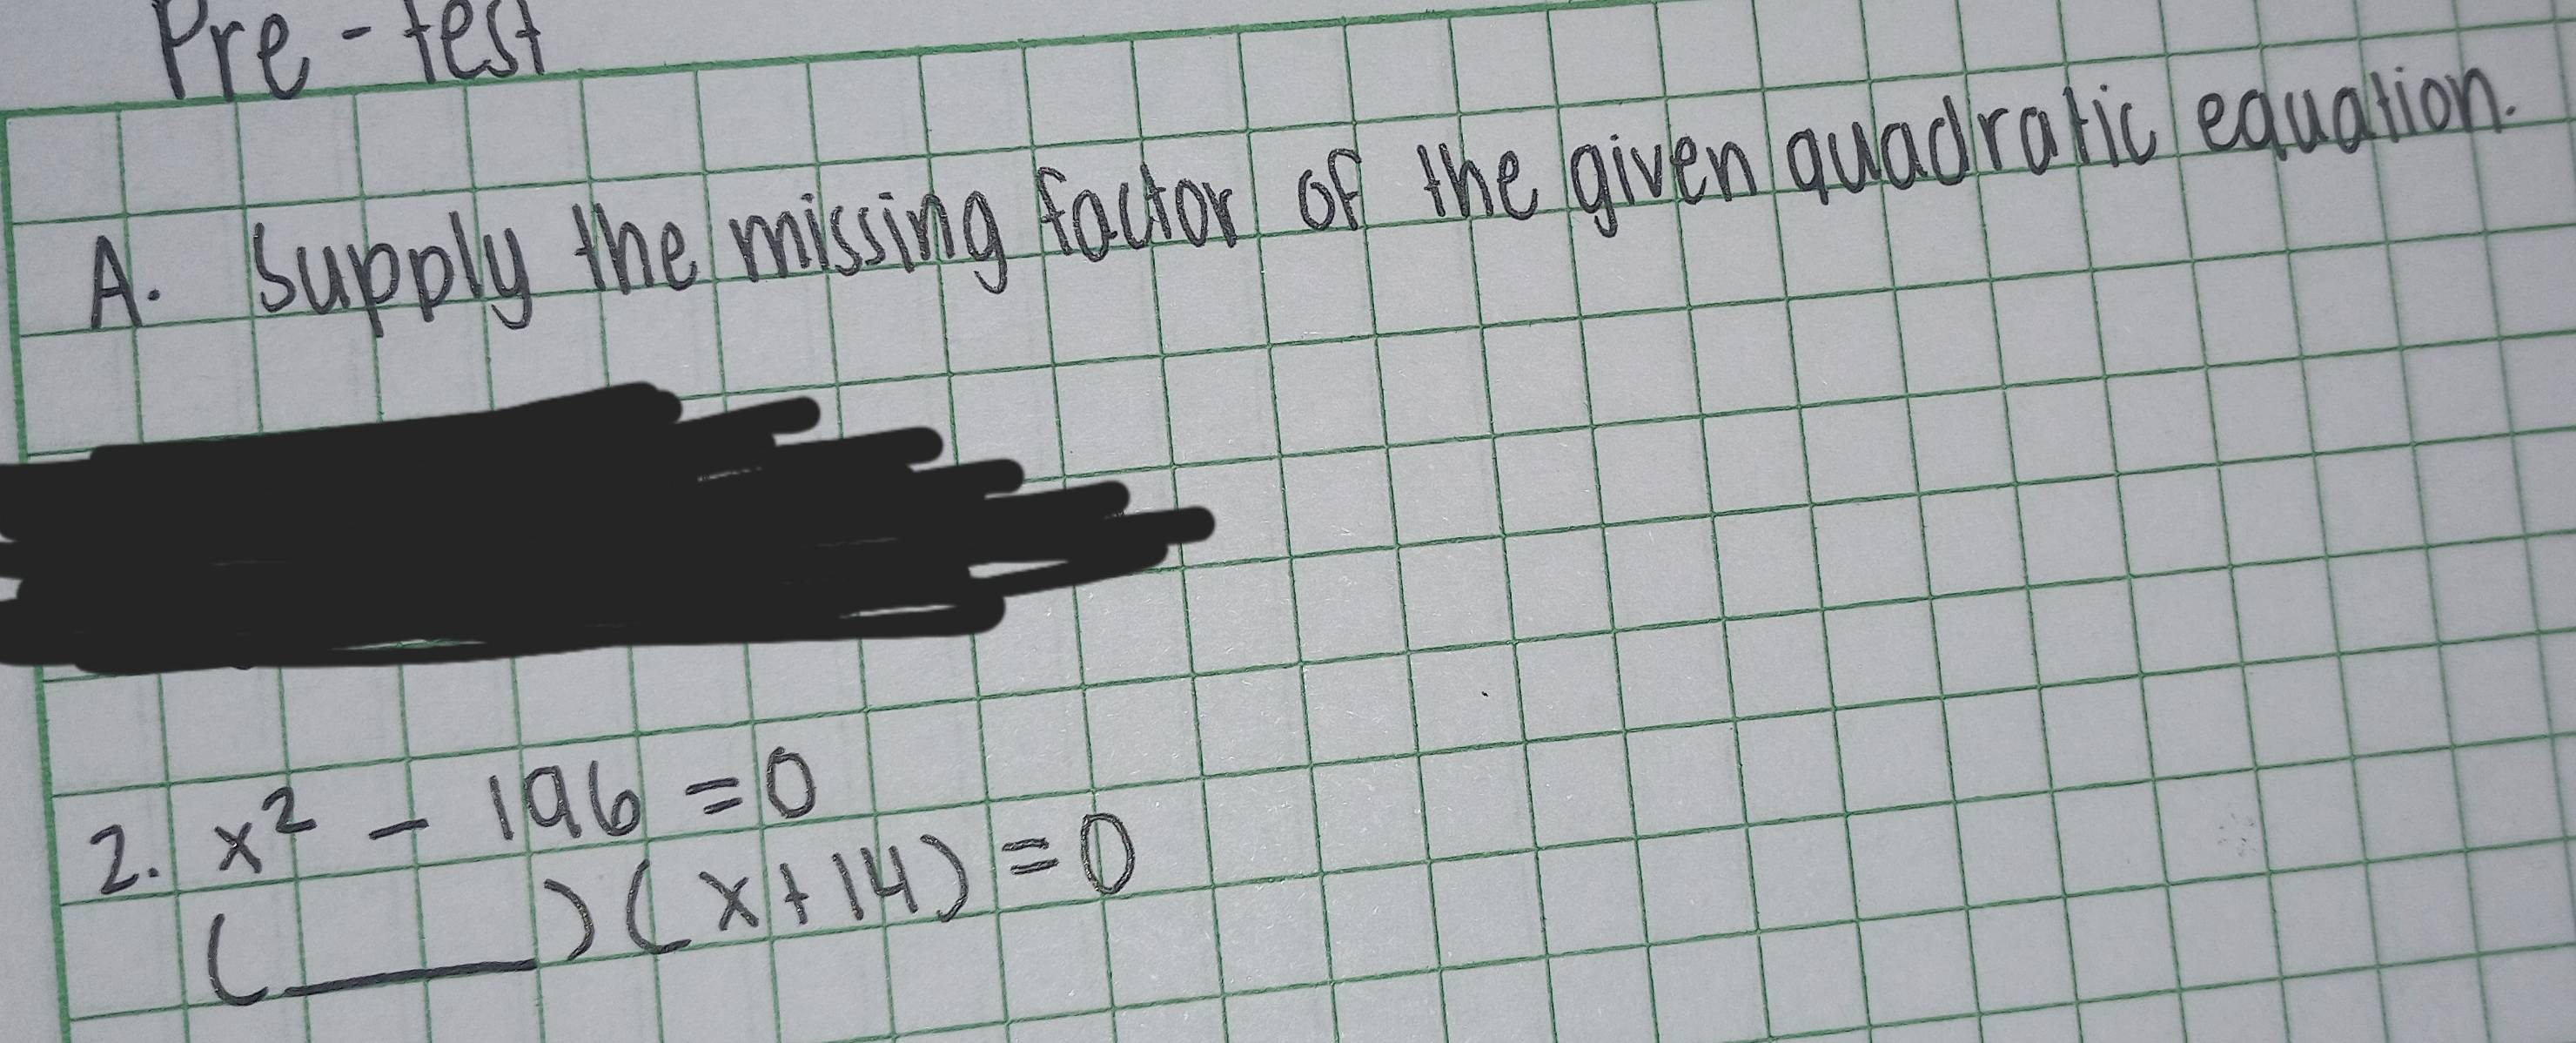 Pre-test
A. Supply the missing factor of the given quadratic equation.
2. x² - 196 = 0
(______)(x+14) = 0